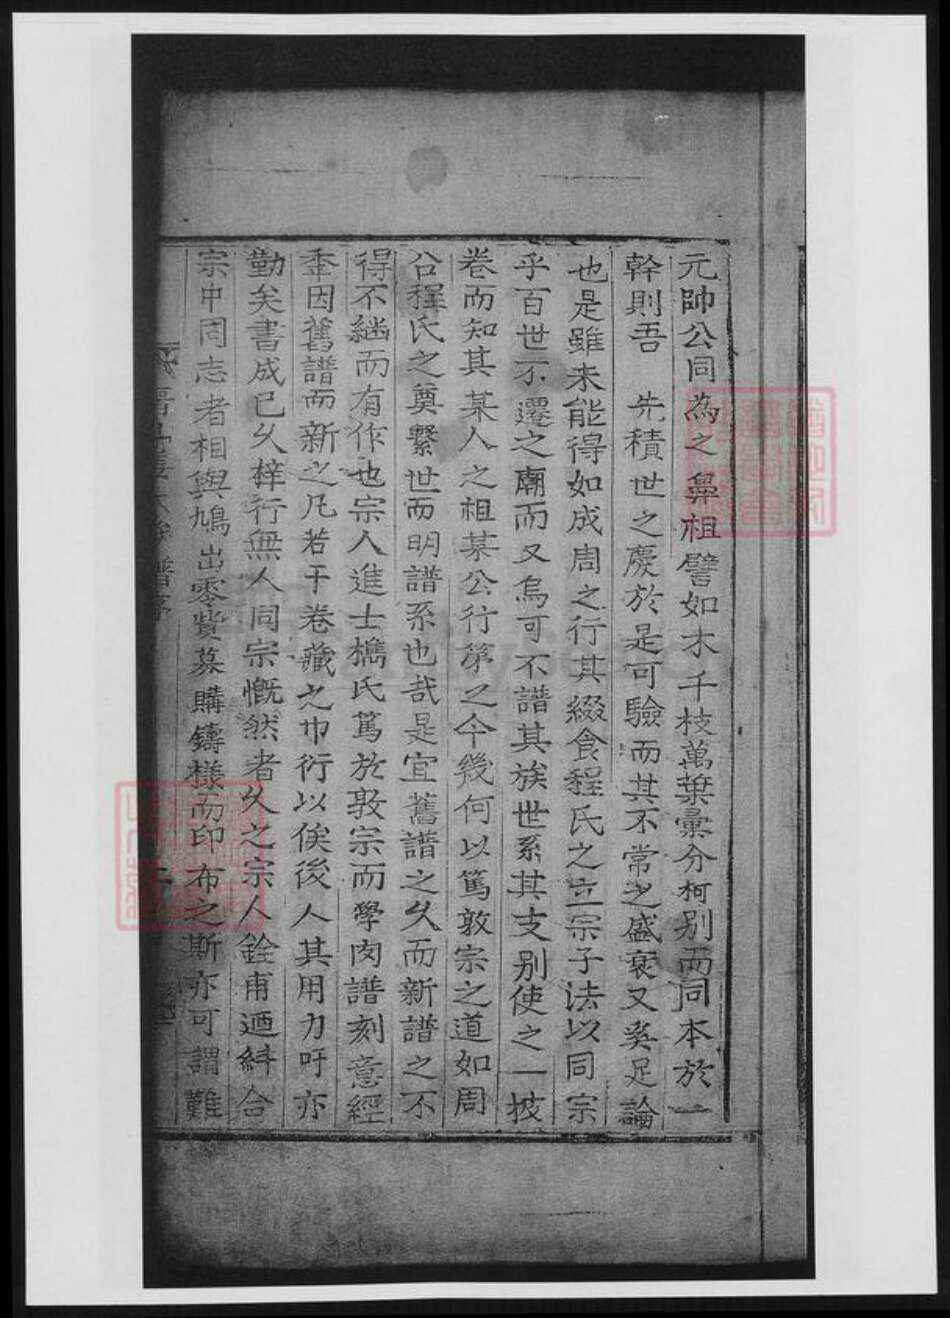 元帥公同為之鼻祖譬如木千枝萬葉彙分柯別而同本於一
幹則吾 先積世之慶於是可驗而其不常之盛衰又奚足論
也是雖未能得如成周之行其綴食程氏之立宗子法以同宗
乎百世不遷之廟而又烏可不譜其族世系其支別使之一披
卷而知其某人之祖某公行第之今幾何以篤敦宗之道如周
公程氏之奠繫世而明譜系也哉是宜舊譜之久而新譜之不
得不継而有作也宗人進士檇氏篤於敦宗而學肉譜刻意經
䄵因舊譜而新之凡若干卷藏之巾衍以俟後人其用力吁亦
勤矣書成已久梓行無人同宗慨然者久之宗人銓甫迺糾合
宗中同志者相與鳩出零貲募購鑄樣而印布之斯亦可謂難